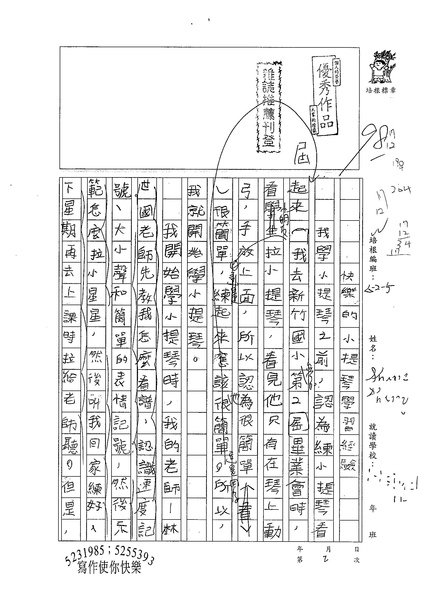 培根標章
個人的榮譽
優秀作品
雜誌推薦刊登
屆
98
培根編班：
姓名：
就讀學校：
年　班
快樂的小提琴學習經驗
我學小提琴之前，認為練小提琴看
起來（我去新竹國小第2屆畢業會時，
看學生拉小提琴，看見他只有在琴上動
弓，手放上面，所以認為很簡單
）很簡單，練起來應該很簡單。所以，
我就開始學小提琴。
我開始學小提琴時，我的老師—林
世國老師先教我怎麼看譜，認識速度記
號、大小聲和簡單的表情記號，然後示
範怎麼拉小星星，然後叫我回家練好，
下星期再去上課時拉給老師聽。但是，
年　月　日
第2次
5231985；5255393
寫作使你快樂